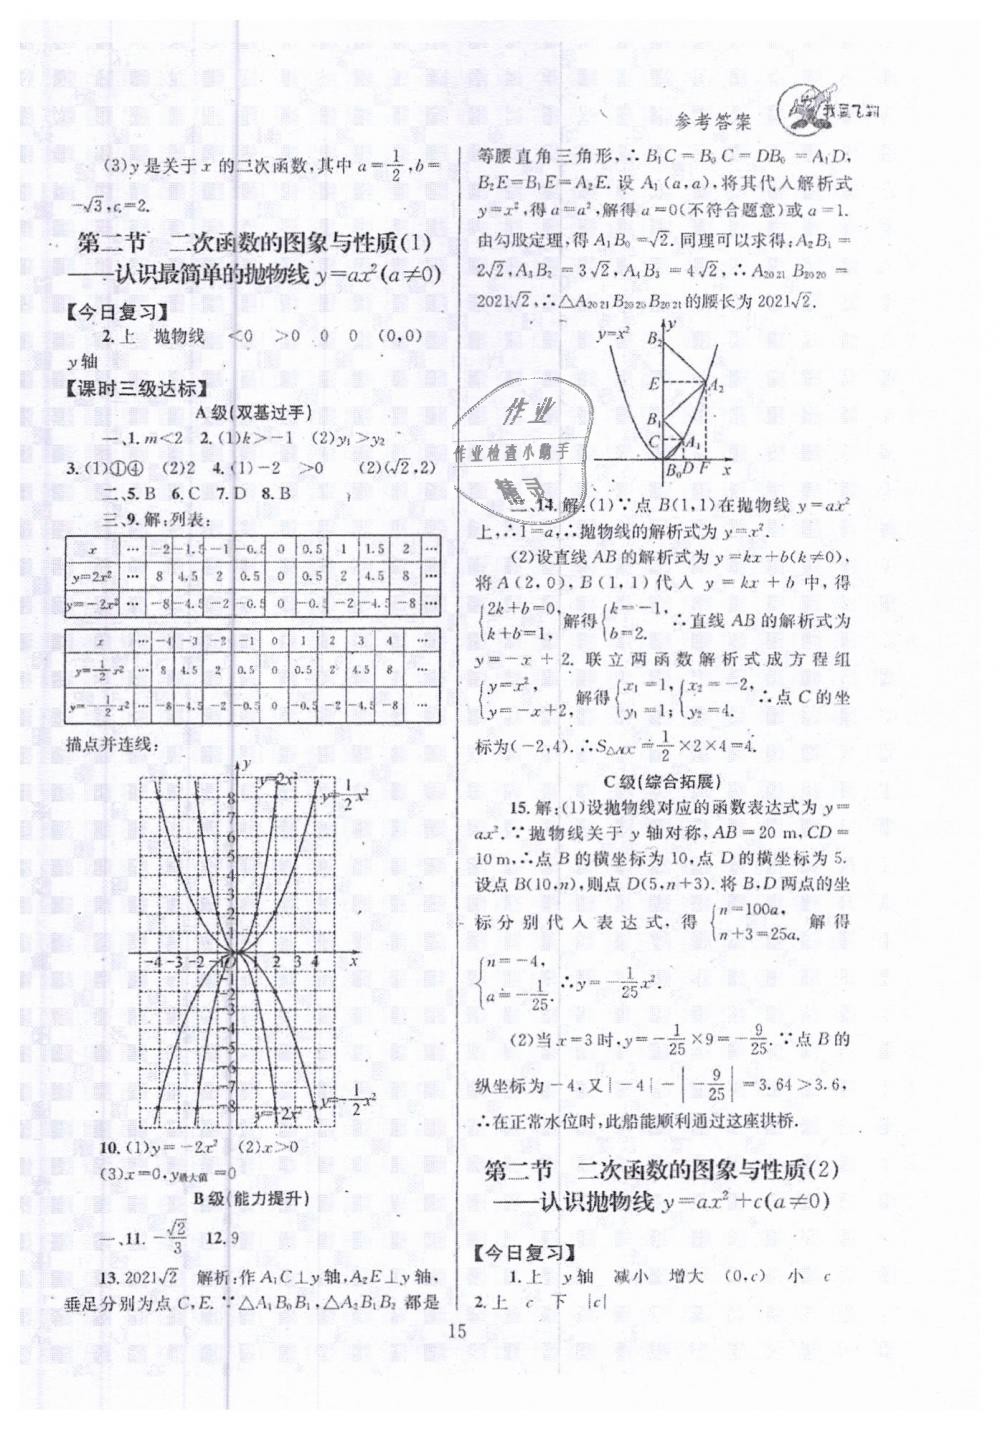 参考答案
(3)y是关于x的二次函数,其中a=1/2,b=
-√3,c=2.
第二节　二次函数的图象与性质(1)
——认识最简单的抛物线y=ax²(a≠0)
【今日复习】
2.上　抛物线　<0　>0　0　0　(0,0)
y轴
【课时三级达标】
A级(双基过手)
一、1.m<2　2.(1)k>-1　(2)y₁>y₂
3.(1)①④　(2)2　4.(1)-2　>0　(2)(√2,2)
二、5.B　6.C　7.D　8.B
三、9.解:列表:
x … -2 -1.5 -1 -0.5 0 0.5 1 1.5 2 …
y=2x² … 8 4.5 2 0.5 0 0.5 2 4.5 8 …
y=-2x² … -8 -4.5 -2 -0.5 0 -0.5 -2 -4.5 -8 …
x … -4 -3 -2 -1 0 1 2 3 4 …
y=1/2x² … 8 4.5 2 0.5 0 0.5 2 4.5 8 …
y=-1/2x² … -8 -4.5 -2 -0.5 0 -0.5 -2 -4.5 -8 …
描点并连线:
y
y=2x²
y=1/2x²
8
7
6
5
4
3
2
1
-4 -3 -2 -1 O 1 2 3 4 x
-1
-2
-3
-4
-5
-6
-7
-8
y=-1/2x²
y=-2x²
10.(1)y=-2x²　(2)x>0
(3)x=0,y最大值=0
B级(能力提升)
一、11.-√2/3　12.9
13.2021√2　解析:作A₁C⊥y轴,A₂E⊥y轴,
垂足分别为点C,E.∵△A₁B₀B₁,△A₂B₁B₂都是
等腰直角三角形,∴B₁C=B₀C=DB₀=A₁D,
B₂E=B₁E=A₂E.设A₁(a,a),将其代入解析式
y=x²,得a=a²,解得a=0(不符合题意)或a=1.
由勾股定理,得A₁B₀=√2.同理可以求得:A₂B₁=
2√2,A₃B₂=3√2,A₄B₃=4√2,∴A₂₀₂₁B₂₀₂₀=
2021√2,∴△A₂₀₂₁B₂₀₂₀B₂₀₂₁的腰长为2021√2.
y=x²
y
B₂
E
A₂
B₁
C
A₁
B₀ D F x
作业
作业检查小助手
精灵
二、14.解:(1)∵点B(1,1)在抛物线y=ax²
上,∴1=a,∴抛物线的解析式为y=x².
(2)设直线AB的解析式为y=kx+b(k≠0),
将A(2,0),B(1,1)代入y=kx+b中,得
{2k+b=0, k+b=1, 解得{k=-1, b=2. ∴直线AB的解析式为
y=-x+2.联立两函数解析式成方程组
{y=x², y=-x+2, 解得{x₁=1, y₁=1; {x₂=-2, y₂=4. ∴点C的坐
标为(-2,4).∴S△AOC=1/2×2×4=4.
C级(综合拓展)
15.解:(1)设抛物线对应的函数表达式为y=
ax².∵抛物线关于y轴对称,AB=20 m,CD=
10 m,∴点B的横坐标为10,点D的横坐标为5.
设点B(10,n),则点D(5,n+3).将B,D两点的坐
标分别代入表达式,得{n=100a, n+3=25a. 解得
{n=-4, a=-1/25. ∴y=-1/25x².
(2)当x=3时,y=-1/25×9=-9/25.∵点B的
纵坐标为-4,又|-4|-|-9/25|=3.64>3.6,
∴在正常水位时,此船能顺利通过这座拱桥.
第二节　二次函数的图象与性质(2)
——认识抛物线y=ax²+c(a≠0)
【今日复习】
1.上　y轴　减小　增大　(0,c)　小　c
2.上　c　下　|c|
15